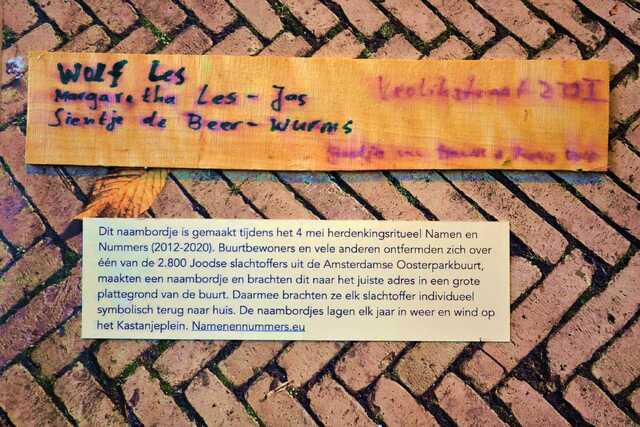 Wolf Les
Margaretha Les - Jas
Sientje de Beer - Wurms
Dit naambordje is gemaakt tijdens het 4 mei herdenkingsritueel Namen en
Nummers (2012-2020). Buurtbewoners en vele anderen ontfermden zich over
één van de 2.800 Joodse slachtoffers uit de Amsterdamse Oosterparkbuurt,
maakten een naambordje en brachten dit naar het juiste adres in een grote
plattegrond van de buurt. Daarmee brachten ze elk slachtoffer individueel
symbolisch terug naar huis. De naambordjes lagen elk jaar in weer en wind op
het Kastanjeplein. Namenennummers.eu